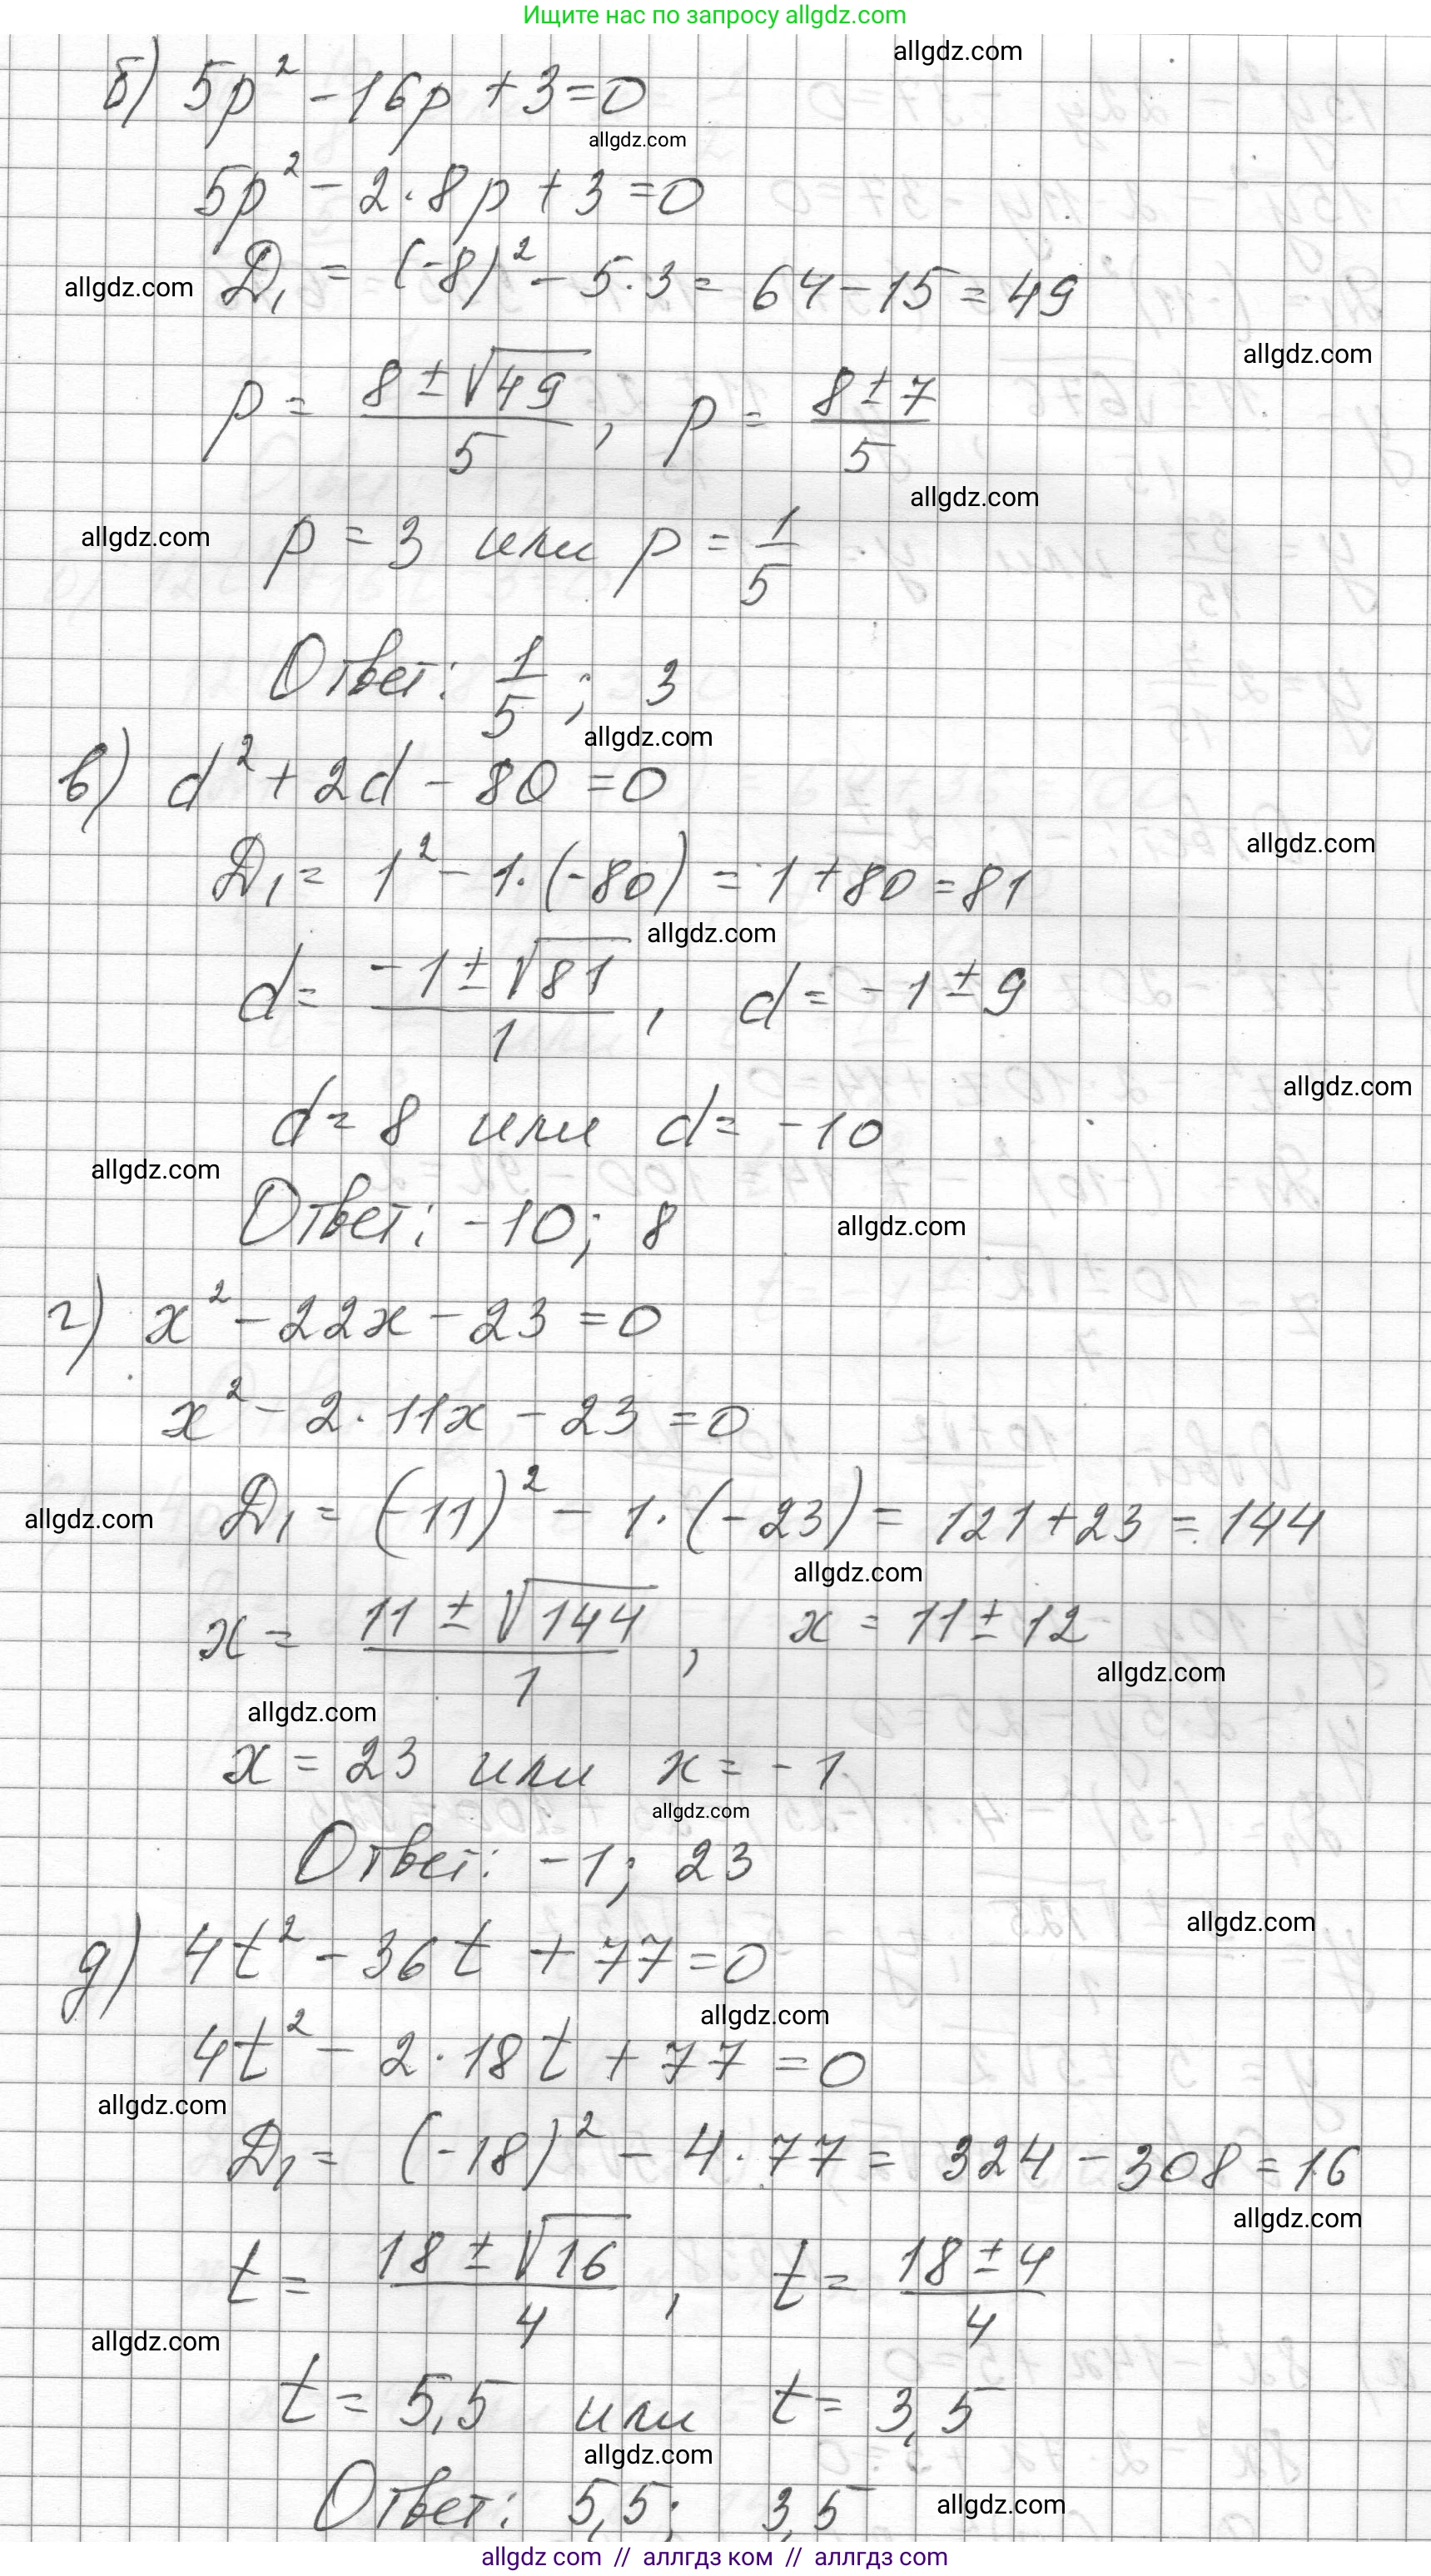 Ищите нас по запросу allgdz.com
allgdz.com
б) 5p² - 16p + 3 = 0
allgdz.com
5p² - 2·8p + 3 = 0
allgdz.com Д₁ = (-8)² - 5·3 = 64 - 15 = 49
allgdz.com
p = (8 ± √49)/5, p = (8 ± 7)/5
allgdz.com
allgdz.com p = 3 или p = 1/5
Ответ: 1/5; 3
allgdz.com
в) d² + 2d - 80 = 0
allgdz.com
Д₁ = 1² - 1·(-80) = 1 + 80 = 81
allgdz.com
d = (-1 ± √81)/1, d = -1 ± 9
allgdz.com
d = 8 или d = -10
allgdz.com
Ответ: -10; 8 allgdz.com
г) x² - 22x - 23 = 0
x² - 2·11x - 23 = 0
allgdz.com Д₁ = (-11)² - 1·(-23) = 121 + 23 = 144
allgdz.com
x = (11 ± √144)/1, x = 11 ± 12
allgdz.com
allgdz.com
x = 23 или x = -1
allgdz.com
Ответ: -1; 23
allgdz.com
д) 4t² - 36t + 77 = 0
allgdz.com
4t² - 2·18t + 77 = 0
allgdz.com
Д₁ = (-18)² - 4·77 = 324 - 308 = 16
allgdz.com
t = (18 ± √16)/4, t = (18 ± 4)/4
allgdz.com
t = 5,5 или t = 3,5
allgdz.com
Ответ: 5,5; 3,5 allgdz.com
allgdz com // аллгдз ком // аллгдз com